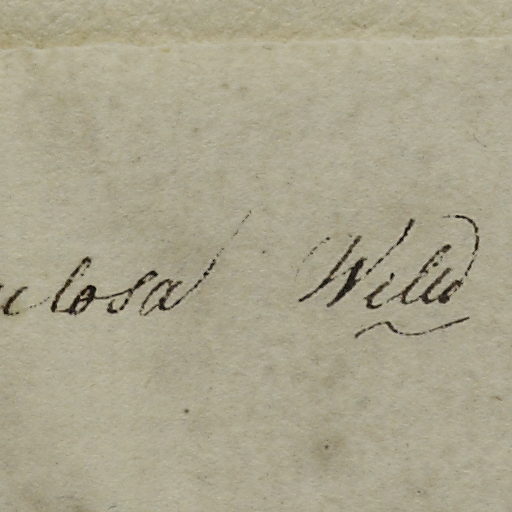 ulosa Willd